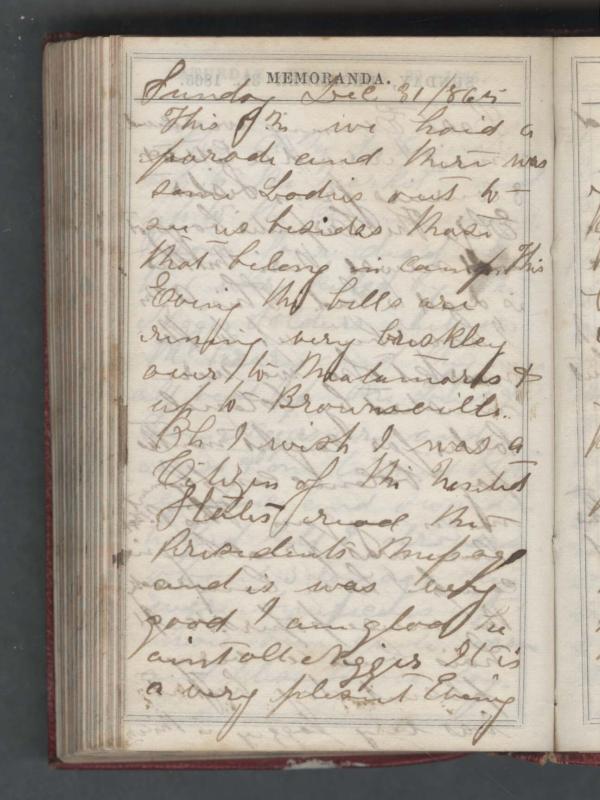 MEMORANDA.
Sunday Dec 31/865
This P.M. we haid a
parade and their was
some Ladis out to
see us besides thase
that belong in camp This
Eving the bells are
runing very briskley
over to Matamaras &
up to Brownsville.
Oh I wish I was a
Citizen of the United
States read the
Presidents Message
and is was very
good I am glad he
ainst all Nigger It is
a very plesint Eving